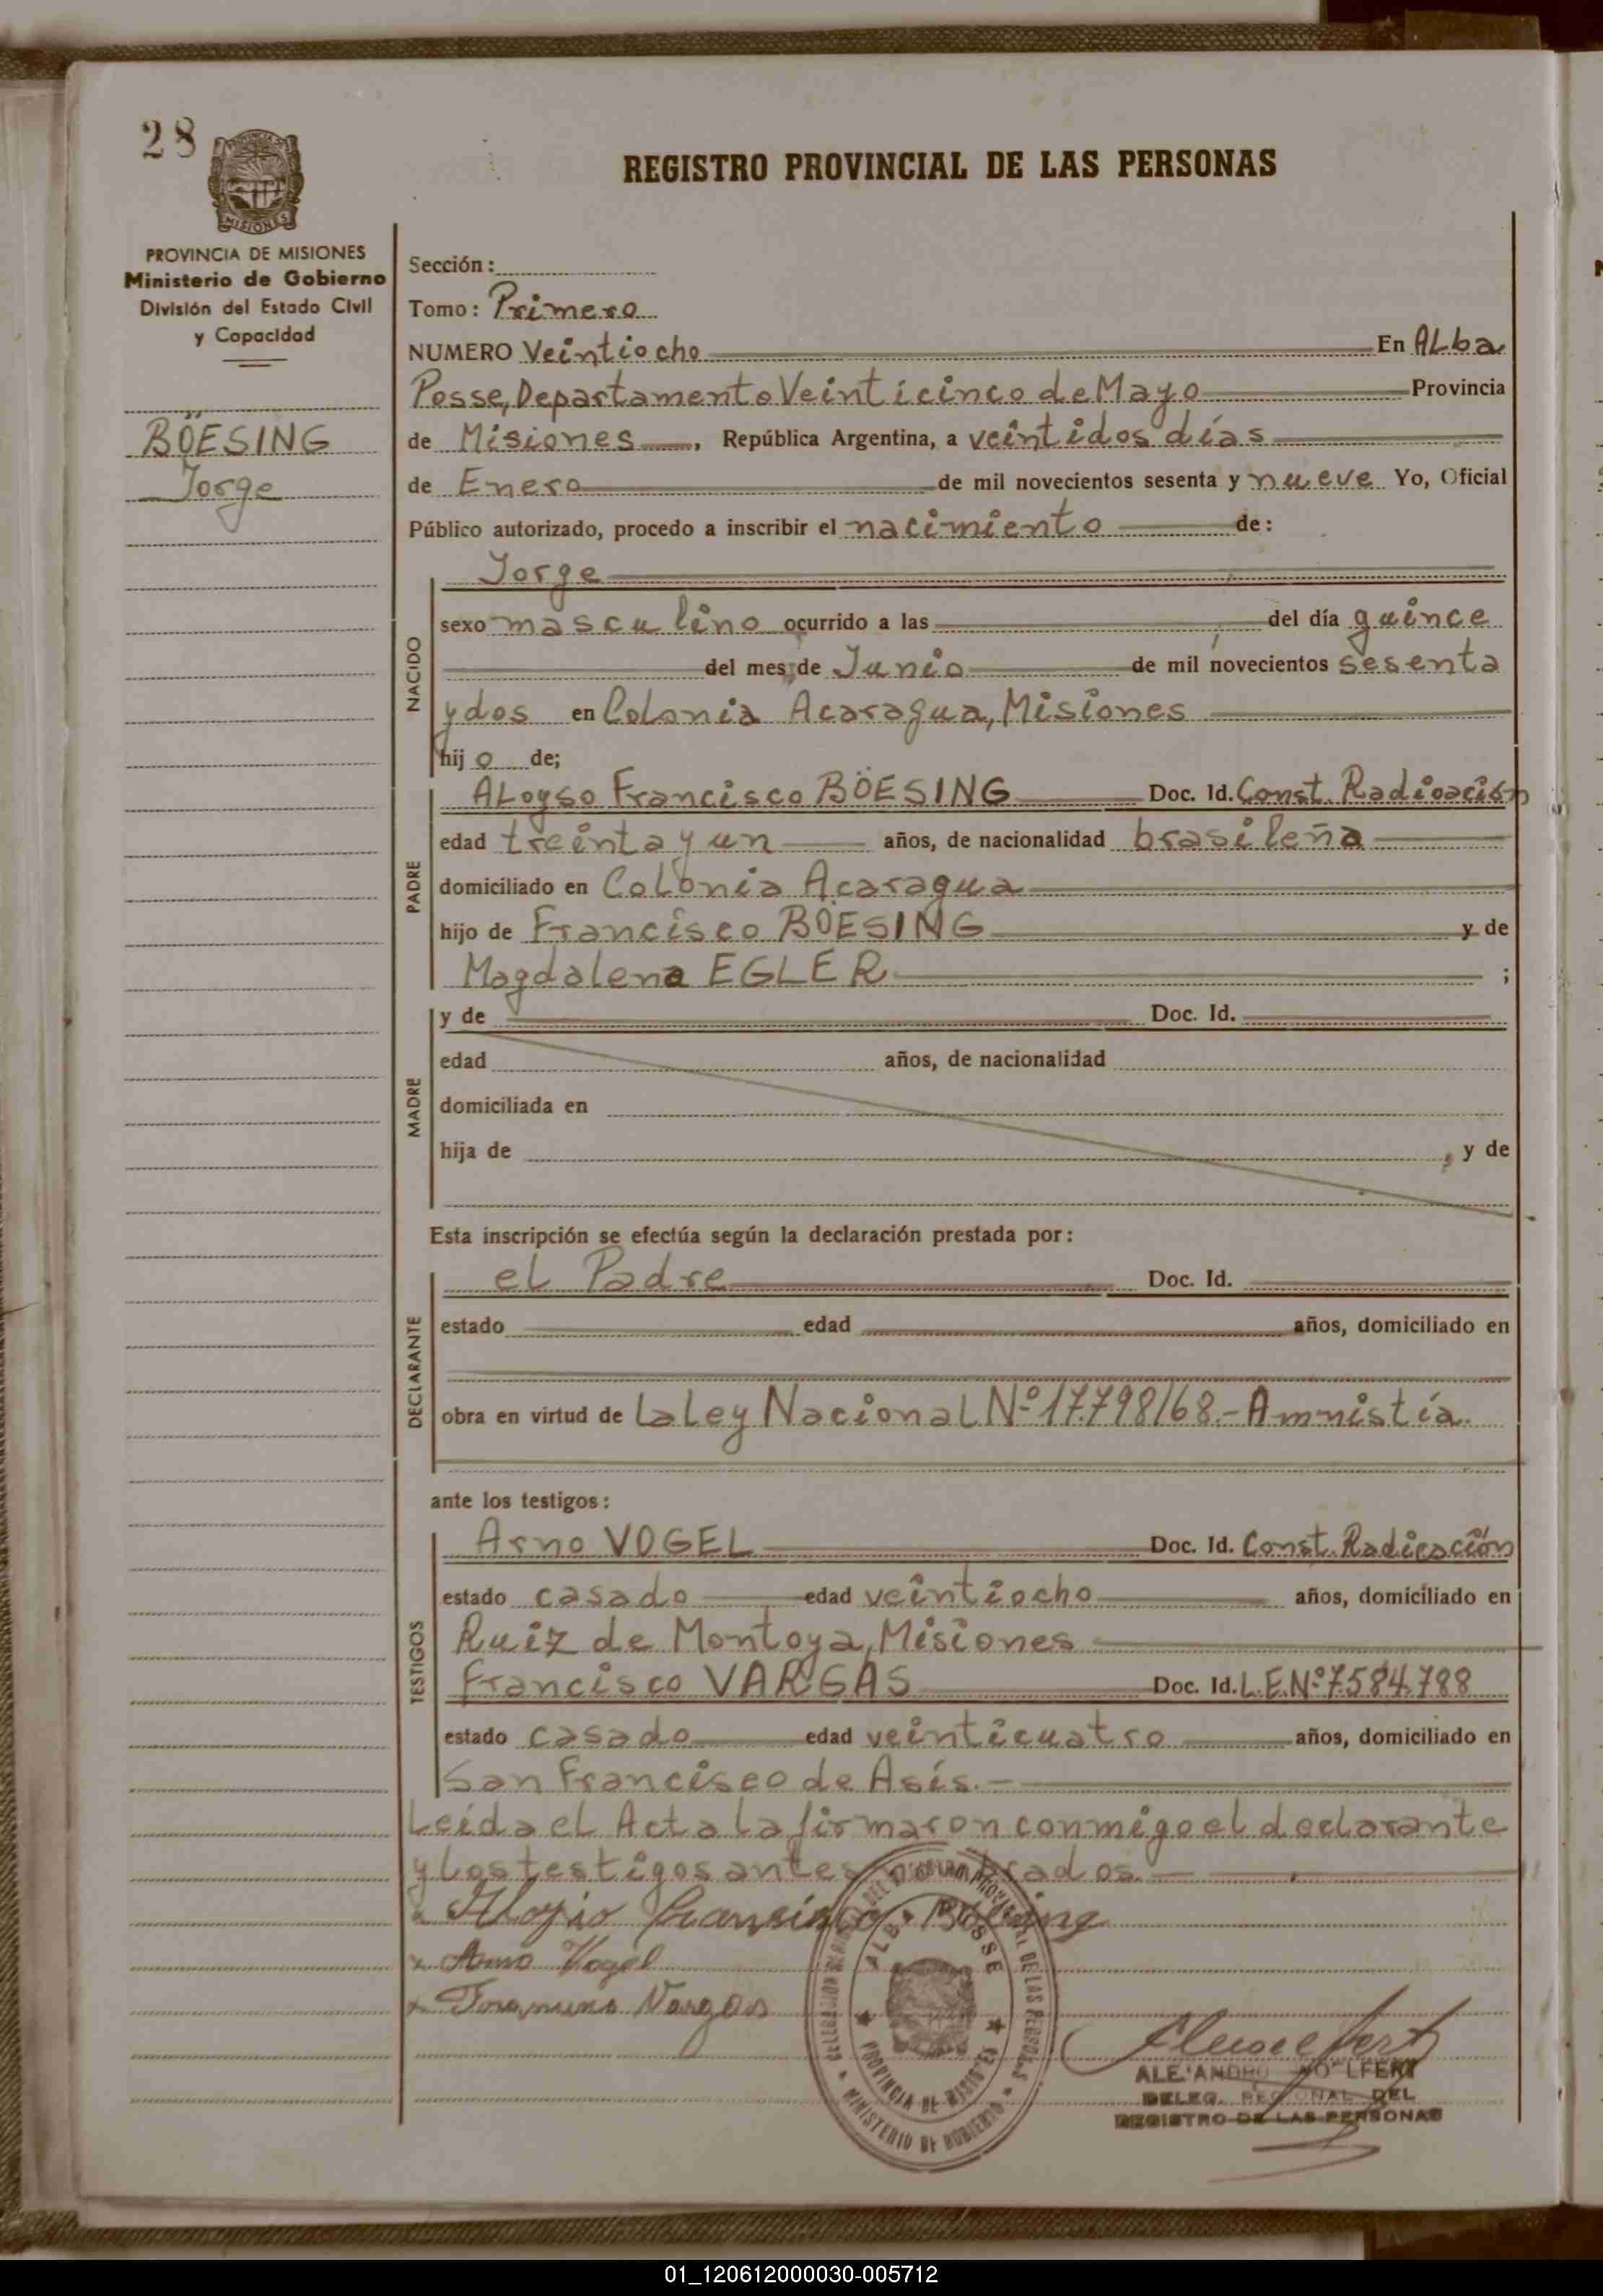 28
PROVINCIA DE
MISIONES
REGISTRO PROVINCIAL DE LAS PERSONAS
PROVINCIA DE MISIONES
Ministerio de Gobierno
División del Estado Civil
y Capacidad
BÖESING
Jorge
Sección:
Tomo: Primero
NUMERO Veintiocho En ALba
Posse, Departamento Veinticinco de Mayo Provincia
de Misiones, República Argentina, a veintidos días
de Enero de mil novecientos sesenta y nueve Yo, Oficial
Público autorizado, procedo a inscribir el nacimiento de:
NACIDO
Jorge
sexo masculino ocurrido a las del día quince
del mes de Junio de mil novecientos sesenta
y dos en Colonia Acaragua, Misiones
hijo de;
PADRE
ALoyso Francisco BÖESING Doc. Id. Const. Radicación
edad treinta y un años, de nacionalidad brasileña
domiciliado en Colonia Acaragua
hijo de Francisco BÖESING y de
Magdalena EGLER ;
MADRE
y de Doc. Id.
edad años, de nacionalidad
domiciliada en
hija de , y de
Esta inscripción se efectúa según la declaración prestada por:
DECLARANTE
el Padre Doc. Id.
estado edad años, domiciliado en
obra en virtud de la Ley Nacional Nº 17.798/68.- Amnistía.
ante los testigos:
TESTIGOS
Arno VOGEL Doc. Id. Const. Radicación
estado casado edad veintiocho años, domiciliado en
Ruiz de Montoya, Misiones
Francisco VARGAS Doc. Id. L.E.Nº 7.584.788
estado casado edad veinticuatro años, domiciliado en
San Francisco de Asís.-
Leída el Acta la firmaron conmigo el declarante
y los testigos antes
Böesing
x Arno Vogel
x Vargas
ALBA POSSE
PROVINCIA DE MISIONES
MINISTERIO DE GOBIERNO
DELEG. REGIONAL DEL
REGISTRO DE LAS PERSONAS
01_120612000030-005712